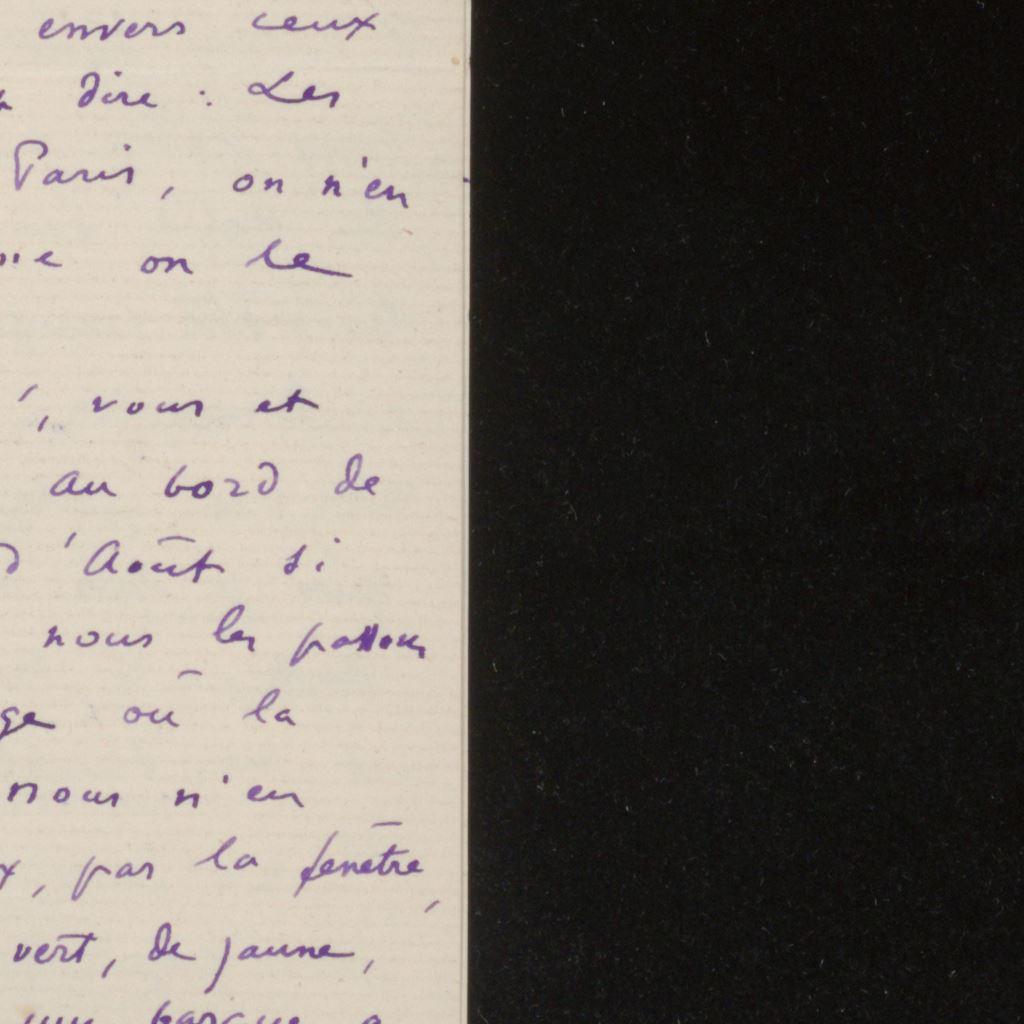 envers ceux
dire : Les
Paris, on n'en
on le
, vous et
au bord de
d'Août si
nous les passons
où la
nous n'en
, par la fenêtre,
vert, de jaune,
barque a